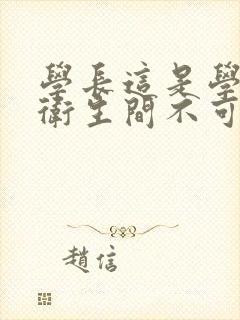 學長這是學
衛生間不可
趙信